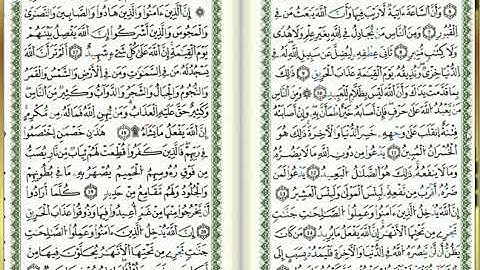 وَأَنَّ ٱلسَّاعَةَ ءَاتِيَةٌ لَّا رَيْبَ فِيهَا وَأَنَّ ٱللَّهَ يَبْعَثُ مَن فِي
ٱلْقُبُورِ ۝ وَمِنَ ٱلنَّاسِ مَن يُجَٰدِلُ فِي ٱللَّهِ بِغَيْرِ عِلْمٍ وَلَا هُدًى
وَلَا كِتَٰبٍ مُّنِيرٍ ۝ ثَانِيَ عِطْفِهِۦ لِيُضِلَّ عَن سَبِيلِ ٱللَّهِ لَهُۥ فِي
ٱلدُّنْيَا خِزْيٌ وَنُذِيقُهُۥ يَوْمَ ٱلْقِيَٰمَةِ عَذَابَ ٱلْحَرِيقِ ۝ ذَٰلِكَ
بِمَا قَدَّمَتْ يَدَاكَ وَأَنَّ ٱللَّهَ لَيْسَ بِظَلَّٰمٍ لِّلْعَبِيدِ ۝ وَمِنَ ٱلنَّاسِ مَن
يَعْبُدُ ٱللَّهَ عَلَىٰ حَرْفٍ فَإِنْ أَصَابَهُۥ خَيْرٌ ٱطْمَأَنَّ بِهِۦ وَإِنْ أَصَابَتْهُ
فِتْنَةٌ ٱنقَلَبَ عَلَىٰ وَجْهِهِۦ خَسِرَ ٱلدُّنْيَا وَٱلْءَاخِرَةَ ذَٰلِكَ هُوَ
ٱلْخُسْرَانُ ٱلْمُبِينُ ۝ يَدْعُوا۟ مِن دُونِ ٱللَّهِ مَا لَا يَضُرُّهُۥ
وَمَا لَا يَنفَعُهُۥ ذَٰلِكَ هُوَ ٱلضَّلَٰلُ ٱلْبَعِيدُ ۝ يَدْعُوا۟ لَمَن
ضَرُّهُۥٓ أَقْرَبُ مِن نَّفْعِهِۦ لَبِئْسَ ٱلْمَوْلَىٰ وَلَبِئْسَ ٱلْعَشِيرُ
۝ إِنَّ ٱللَّهَ يُدْخِلُ ٱلَّذِينَ ءَامَنُوا۟ وَعَمِلُوا۟ ٱلصَّٰلِحَٰتِ جَنَّٰتٍ
تَجْرِي مِن تَحْتِهَا ٱلْأَنْهَٰرُ إِنَّ ٱللَّهَ يَفْعَلُ مَا يُرِيدُ ۝ مَن كَانَ
يَظُنُّ أَن لَّن يَنصُرَهُ ٱللَّهُ فِي ٱلدُّنْيَا وَٱلْءَاخِرَةِ فَلْيَمْدُدْ بِسَبَبٍ إِلَى
إِنَّ ٱلَّذِينَ ءَامَنُوا۟ وَٱلَّذِينَ هَادُوا۟ وَٱلصَّٰبِـِٔينَ وَٱلنَّصَٰرَىٰ
وَٱلْمَجُوسَ وَٱلَّذِينَ أَشْرَكُوٓا۟ إِنَّ ٱللَّهَ يَفْصِلُ بَيْنَهُمْ
يَوْمَ ٱلْقِيَٰمَةِ إِنَّ ٱللَّهَ عَلَىٰ كُلِّ شَيْءٍ شَهِيدٌ ۝ أَلَمْ تَرَ أَنَّ ٱللَّهَ
يَسْجُدُ لَهُۥ مَن فِي ٱلسَّمَٰوَٰتِ وَمَن فِي ٱلْأَرْضِ وَٱلشَّمْسُ وَٱلْقَمَرُ
وَٱلنُّجُومُ وَٱلْجِبَالُ وَٱلشَّجَرُ وَٱلدَّوَآبُّ وَكَثِيرٌ مِّنَ ٱلنَّاسِ
وَكَثِيرٌ حَقَّ عَلَيْهِ ٱلْعَذَابُ وَمَن يُهِنِ ٱللَّهُ فَمَا لَهُۥ مِن مُّكْرِمٍ
إِنَّ ٱللَّهَ يَفْعَلُ مَا يَشَآءُ ۝ هَٰذَانِ خَصْمَانِ ٱخْتَصَمُوا۟
فِي رَبِّهِمْ فَٱلَّذِينَ كَفَرُوا۟ قُطِّعَتْ لَهُمْ ثِيَابٌ مِّن نَّارٍ يُصَبُّ
مِن فَوْقِ رُءُوسِهِمُ ٱلْحَمِيمُ ۝ يُصْهَرُ بِهِۦ مَا فِي بُطُونِهِمْ
وَٱلْجُلُودُ ۝ وَلَهُم مَّقَٰمِعُ مِنْ حَدِيدٍ ۝ كُلَّمَآ أَرَادُوٓا۟
أَن يَخْرُجُوا۟ مِنْهَا مِنْ غَمٍّ أُعِيدُوا۟ فِيهَا وَذُوقُوا۟ عَذَابَ ٱلْحَرِيقِ
۝ إِنَّ ٱللَّهَ يُدْخِلُ ٱلَّذِينَ ءَامَنُوا۟ وَعَمِلُوا۟ ٱلصَّٰلِحَٰتِ
جَنَّٰتٍ تَجْرِي مِن تَحْتِهَا ٱلْأَنْهَٰرُ يُحَلَّوْنَ فِيهَا مِنْ